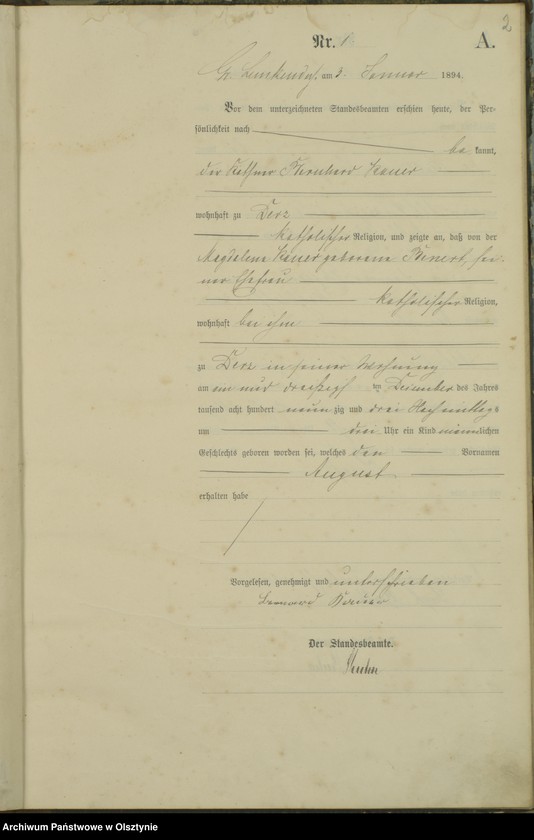 2
Nr. 1. A.
am 3. Januar 1894.
Vor dem unterzeichneten Standesbeamten erschien heute, der Per-
sönlichkeit nach
be kannt,
der Käthner Bernhard
wohnhaft zu Derz
katholischer Religion, und zeigte an, daß von der
Magdalena geborene sei-
ner Ehefrau
katholischer Religion,
wohnhaft bei ihm
zu Derz in seiner Wohnung
am ein und dreißigsten Dezember des Jahres
tausend acht hundert neunzig und drei Nachmittags
um Uhr ein Kind männlichen
Geschlechts geboren worden sei, welches den Vornamen
August
erhalten habe
Vorgelesen, genehmigt und unterschrieben
Der Standesbeamte.
Archiwum Państwowe w Olsztynie